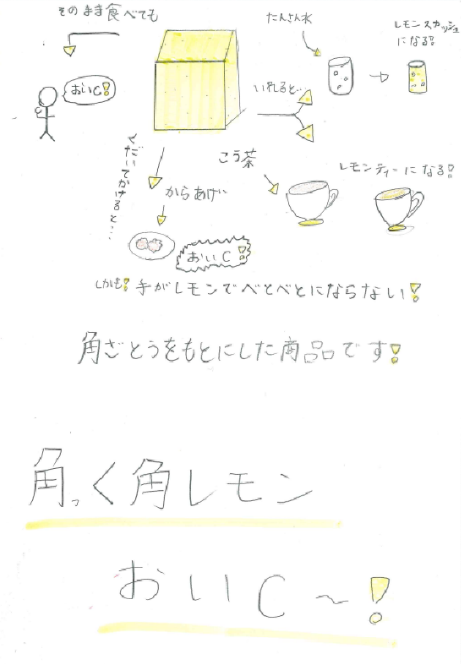 そのまま食べても
おいC!
たんさん水
いれると…
レモンスカッシュ
になる!
こう茶
レモンティーになる!
くだいてかけると…
からあげ
おいC!
しかも!手がレモンでべとべとにならない!
角ざとうをもとにした商品です!
角っく角レモン
おいC~!